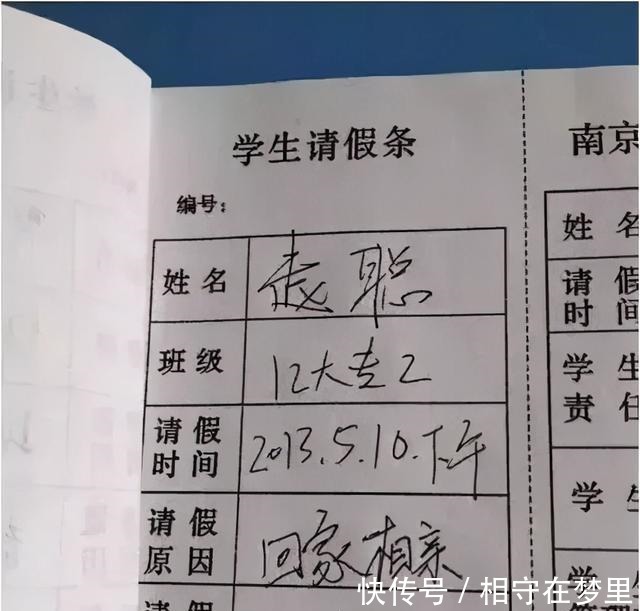 学生请假条
编号:
姓名 聪
班级 12大专2
请假时间 2013.5.10.下午
请假原因 回家相亲
请假
南京
姓名
请假时间
学生责任
学生
快传号/相守在梦里